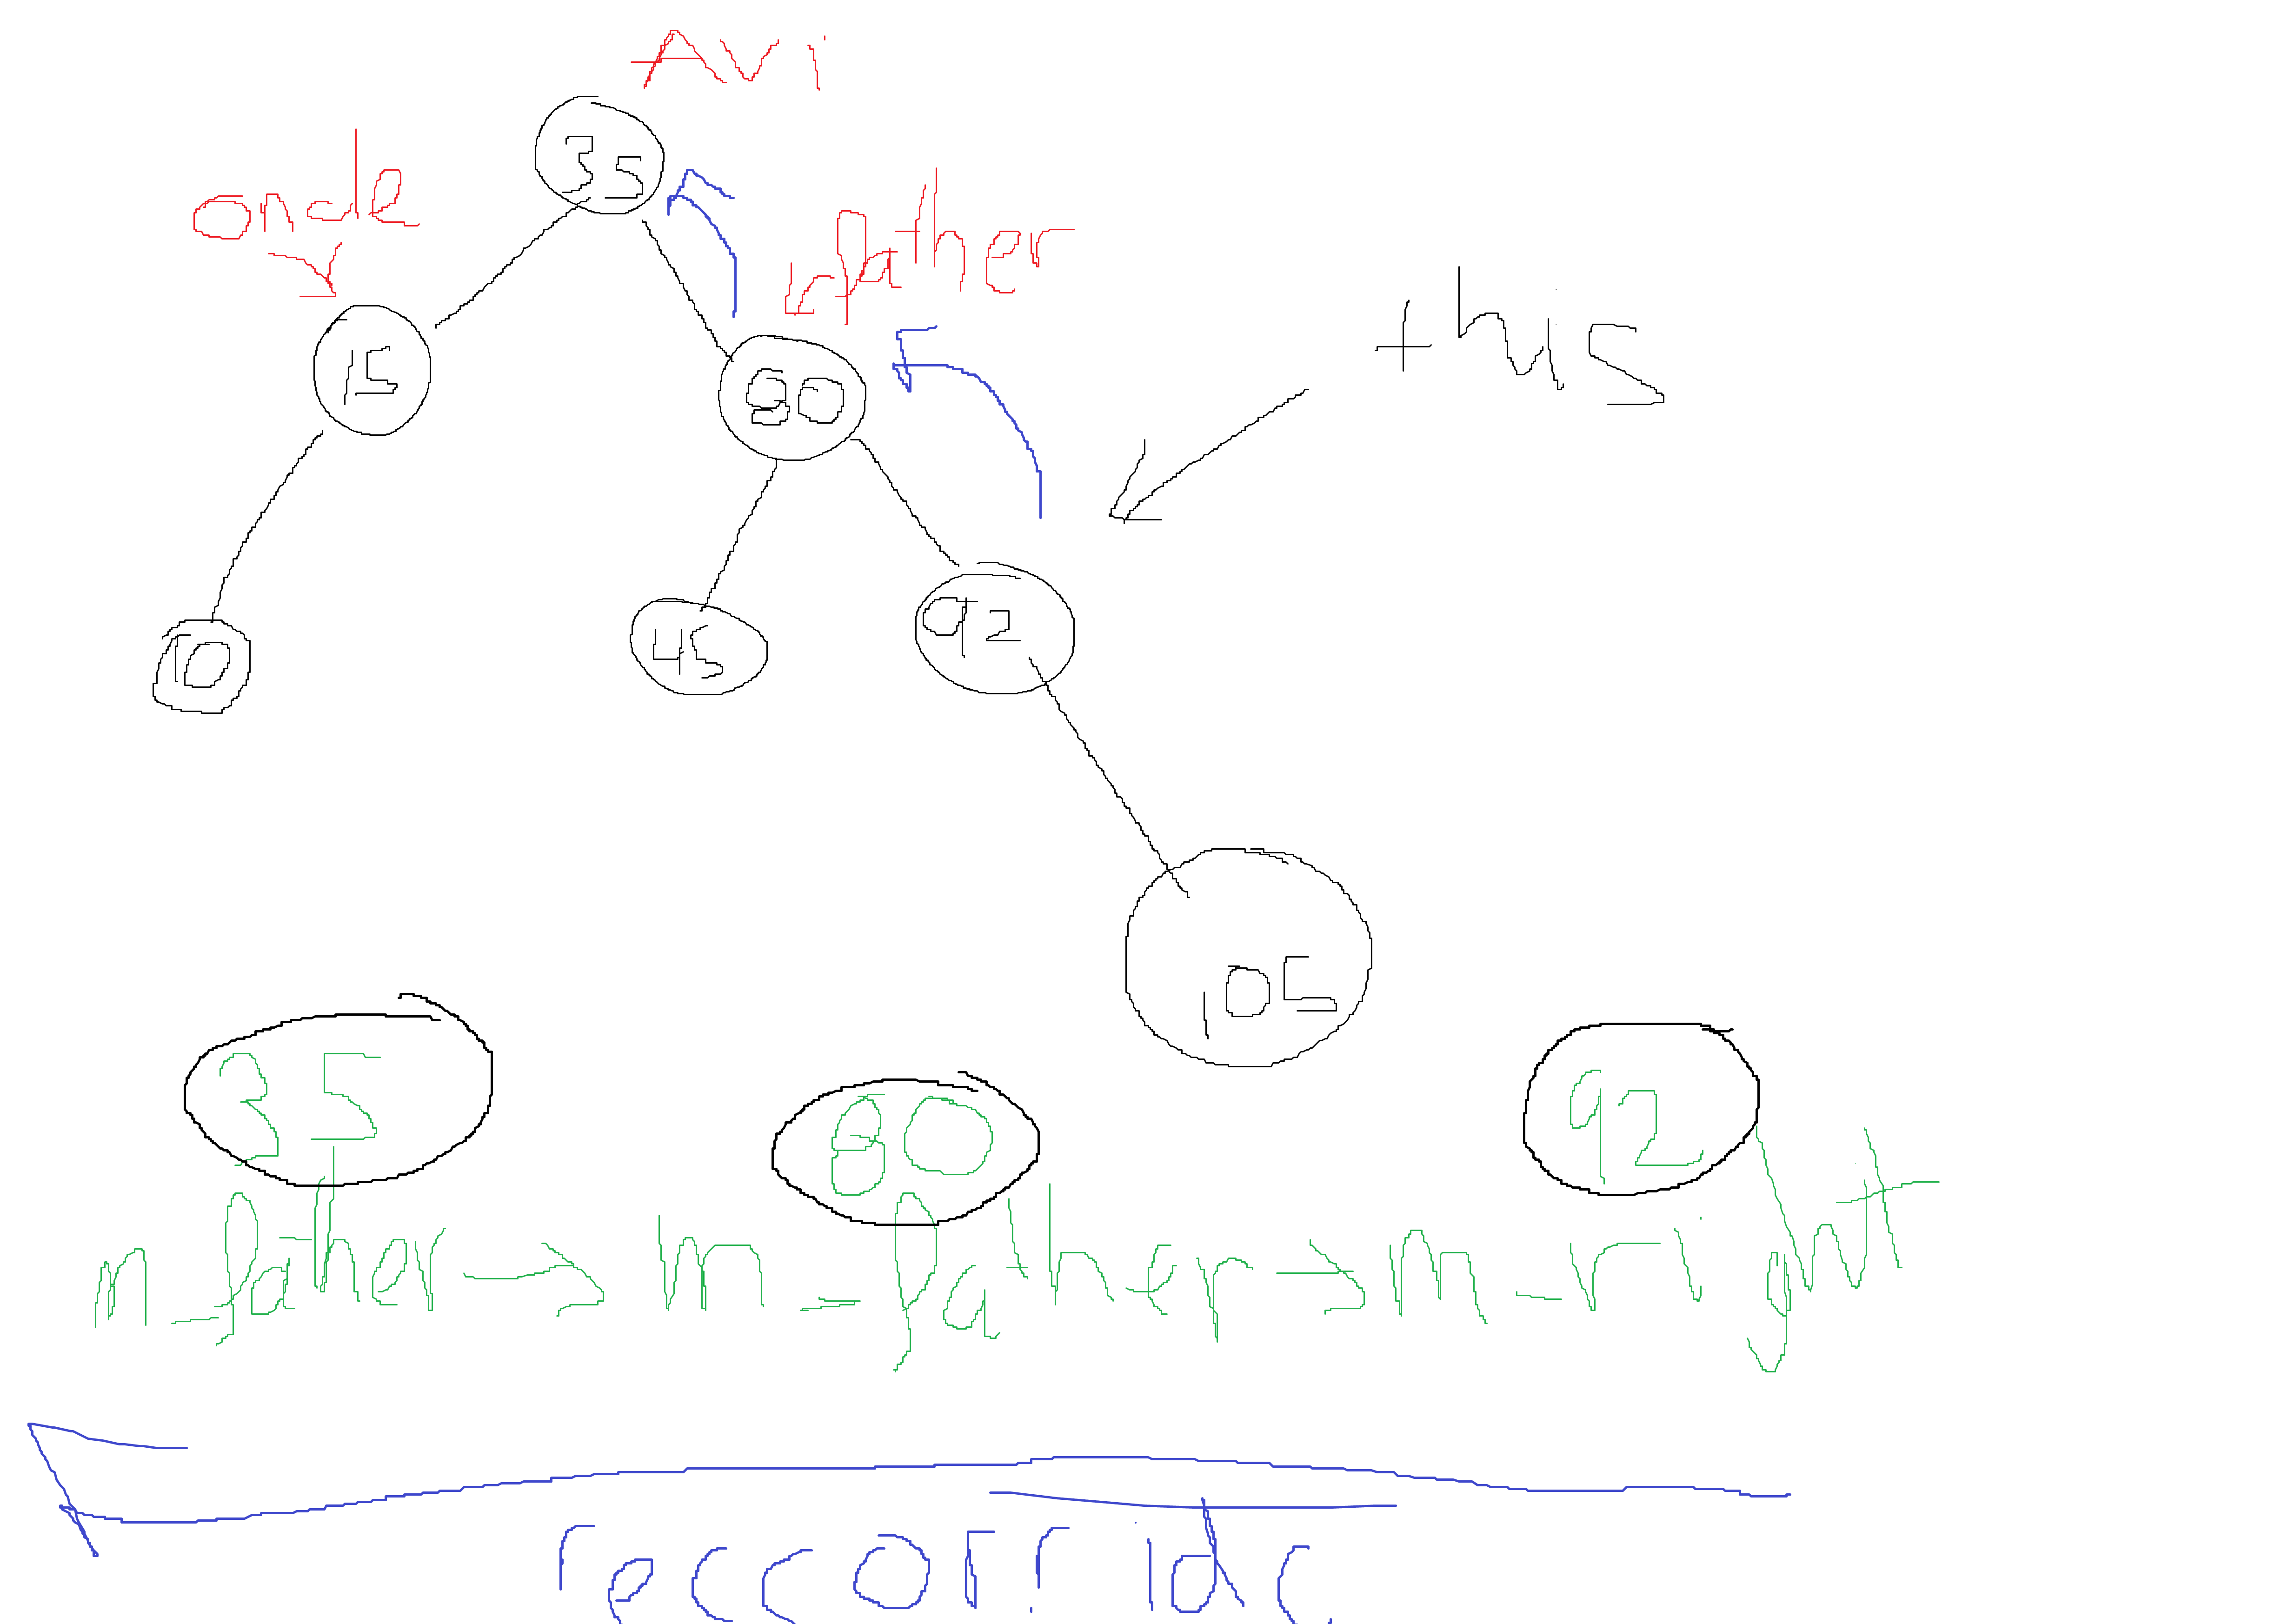 Avi
35
oncle
father
this
15
80
10
45
92
105
35
80
92
m_father->m_father->m_right
reccorrido